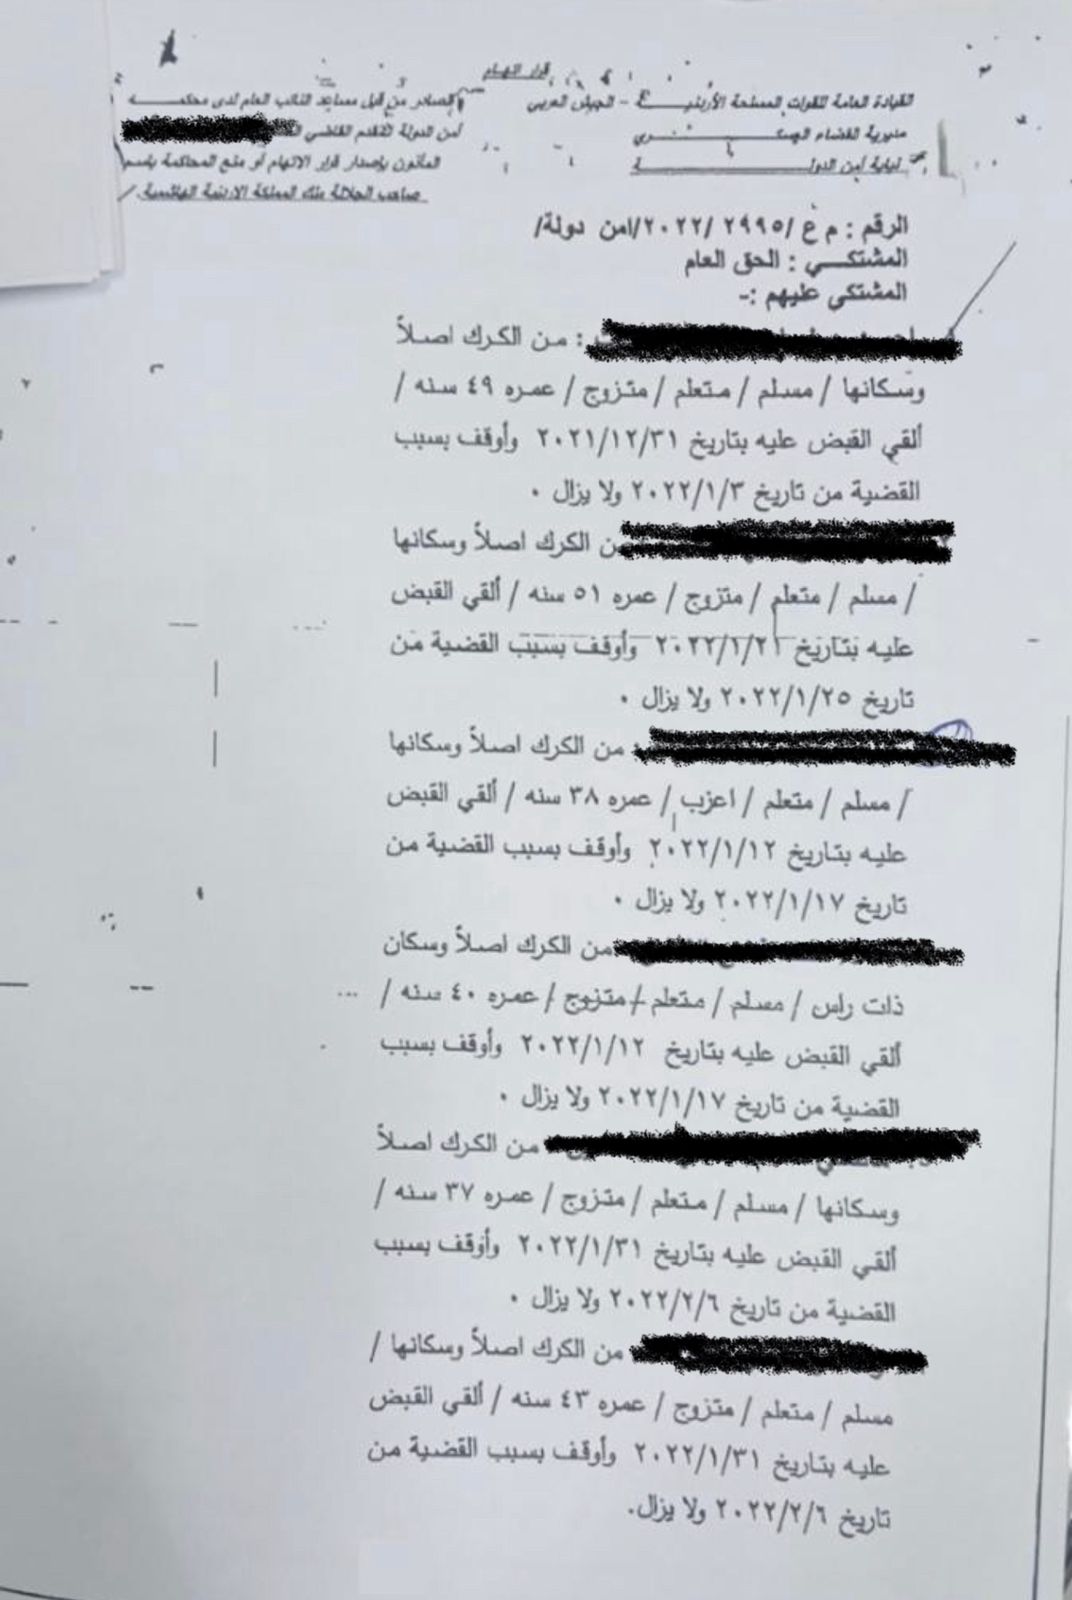 قرار اتهام
القيادة العامة للقوات المسلحة الأردنيـــة - الجيش العربي
مديرية القضاء العسكـــــــــري
نيابة أمن الدولــــــــــــــة
الصادر من قبل مساعد النائب العام لدى محكمـــــه
أمن الدولة المقدم القاضي
المأذون بإصدار قرار الاتهام أو منع المحاكمة بإسم
صاحب الجلالة ملك المملكة الاردنية الهاشمية.
الرقم : م ع /٢٩٩٥ /٢٠٢٢/امن دولة/
المشتكـــي : الحق العام
المشتكى عليهم :-
: من الكرك اصلاً
وسكانها / مسلم / متعلم / متزوج / عمره ٤٩ سنه /
ألقي القبض عليه بتاريخ ٢٠٢١/١٢/٣١ وأوقف بسبب
القضية من تاريخ ٢٠٢٢/١/٣ ولا يزال ٠
من الكرك اصلاً وسكانها
/ مسلم / متعلم / متزوج / عمره ٥١ سنه / ألقي القبض
عليه بتاريخ ٢٠٢٢/١/٢١ وأوقف بسبب القضية من
تاريخ ٢٠٢٢/١/٢٥ ولا يزال ٠
من الكرك اصلاً وسكانها
/ مسلم / متعلم / اعزب / عمره ٣٨ سنه / ألقي القبض
عليه بتاريخ ٢٠٢٢/١/١٢ وأوقف بسبب القضية من
تاريخ ٢٠٢٢/١/١٧ ولا يزال ٠
من الكرك اصلاً وسكان
ذات راس / مسلم / متعلم / متزوج / عمره ٤٠ سنه /
ألقي القبض عليه بتاريخ ٢٠٢٢/١/١٢ وأوقف بسبب
القضية من تاريخ ٢٠٢٢/١/١٧ ولا يزال ٠
من الكرك اصلاً
وسكانها / مسلم / متعلم / متزوج / عمره ٣٧ سنه /
ألقي القبض عليه بتاريخ ٢٠٢٢/١/٣١ وأوقف بسبب
القضية من تاريخ ٢٠٢٢/٢/٦ ولا يزال ٠
من الكرك اصلاً وسكانها /
مسلم / متعلم / متزوج / عمره ٤٣ سنه / ألقي القبض
عليه بتاريخ ٢٠٢٢/١/٣١ وأوقف بسبب القضية من
تاريخ ٢٠٢٢/٢/٦ ولا يزال.